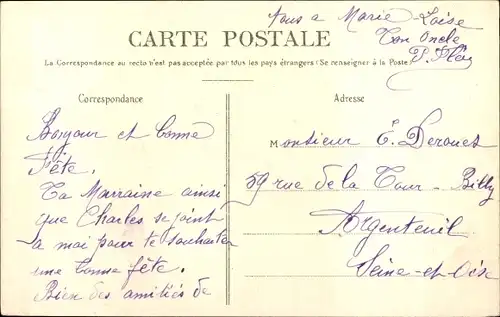 tous a Marie-Loise
Ton Oncle
P.
CARTE POSTALE
La Correspondance au recto n'est pas acceptée par tous les pays étrangers (Se renseigner à la Poste)
Correspondance
Bonjour et bonne
Fête.
Ta Marraine ainsi
que Charles se joint
a moi pour te souhaiter
une bonne fête.
Bien des amitiés de
Adresse
Monsieur E. Derouet
59 rue de la Tour-Billy
Argenteuil
Seine-et-Oise